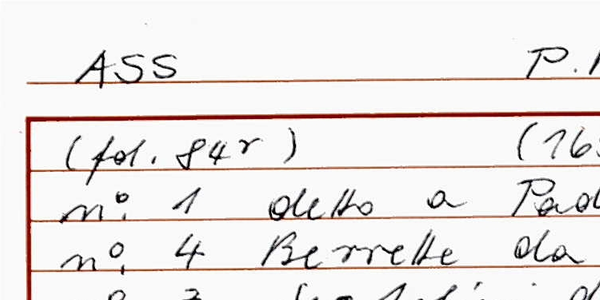 ASS P.
(fol. 84r) (16
n°. 1 detto a Pad
n°. 4 Berrette da